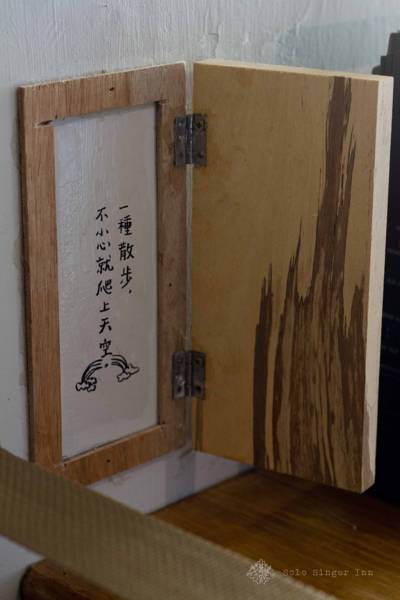 一種散步，
不小心就爬上天空。
Solo Singer Inn